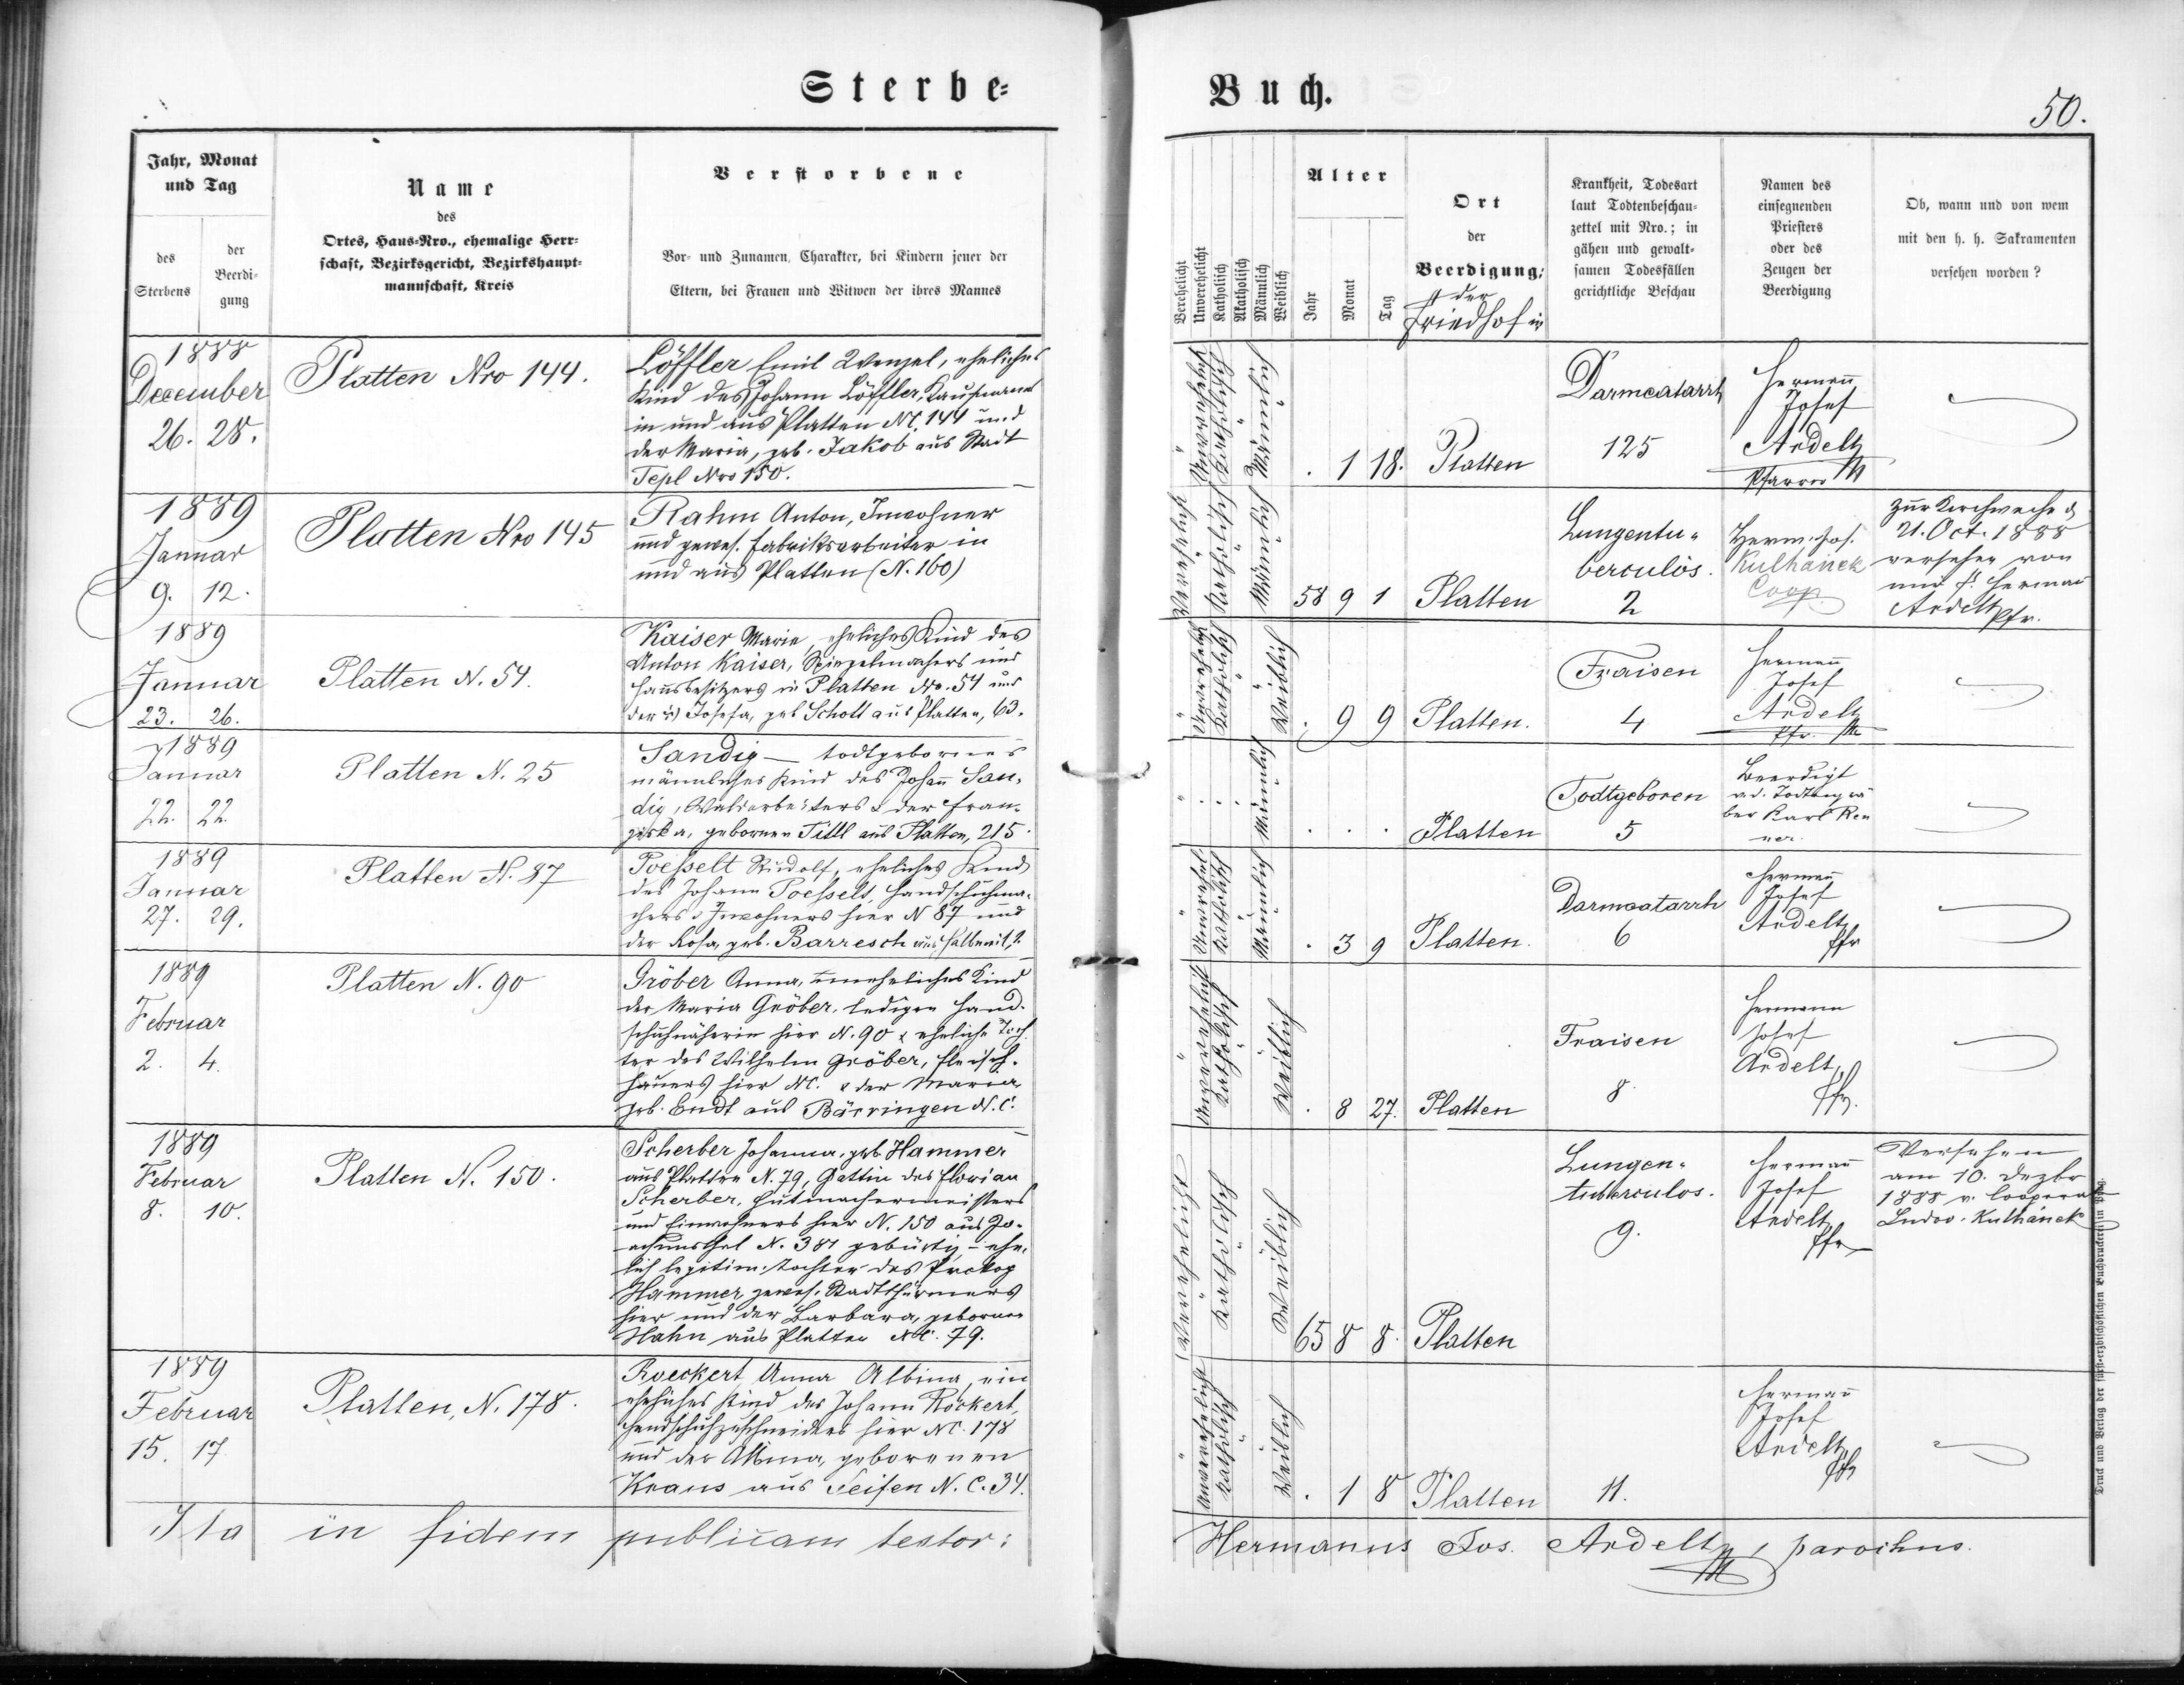 Sterbe-
Jahr, Monat
und Tag
des
Sterbens
der
Beerdi-
gung
Name
des
Ortes, Haus-Nro., ehemalige Herr-
schaft, Bezirksgericht, Bezirkshaupt-
mannschaft, Kreis
Verstorbene
Vor- und Zunamen, Charakter, bei Kindern jener der
Eltern, bei Frauen und Witwen der ihres Mannes
1888
December
26. 28.
Platten Nro 144.
Löffler Emil Wenzel, eheliches
Kind des Johann Löffler, Kaufmann
in und aus Platten NC. 144 und
der Maria, geb. Jakob aus Stadt
Tepl Nro 150.
1889
Januar
9. 12.
Platten Nro 145
Rahm Anton, Inwohner
und gewes. Fabriksarbeiter in
und aus Platten (N. 160)
1889
Januar
23. 26.
Platten N. 54.
Kaiser Marie, eheliches Kind des
Anton Kaiser, Spiegelmachers und
Hausbesitzers in Platten No. 54 und
der Josefa, geb Schott aus Platten, 63.
1889
Januar
22. 22.
Platten N. 25
Sandig — todtgebornes
männliches Kind des Johañ San-
dig, Waldarbeiters & der Fran-
ziska, gebornen Tittl aus Platten, 215.
1889
Januar
27. 29.
Platten N. 87
Poesselt Rudolf, eheliches Kind
des Johann Poesselt, Handschuhma-
chers & Inwohners hier N 87 und
der Rosa, geb. Barresch aus
1889
Februar
2. 4.
Platten N. 90
Gröber Anna, uneheliches Kind
der Maria Gröber, ledigen Hand-
schuhnäherin hier N. 90 & eheliche Toch
ter des Wilhelm Gröber, Fleisch-
hauers hier NC. & der Maria,
geb. Endt aus Bärringen N. C.
1889
Februar
8. 10.
Platten N. 150.
Scherber Johanna, geb Hammer
aus Platten N. 79, Gattin des Florian
Scherber, Hutmachermeisters
und Einwohners hier N. 150 aus Jo-
achimsthal N. 381 gebürtig – ehe-
lich legitim. Tochter des Prokop
Hammer gewes. Stadtthürmers
hier und der Barbara, gebornen
Hahn aus Platten NC. 79.
1889
Februar
15. 17.
Platten, N. 178.
Roeckert Anna Albina, ein
eheliches Kind des Johann Röckert,
Handschuhzuschneiders hier NC. 178
und der Albina, geborenen
Kraus aus Seifen N. C. 34.
Ita in fidem publicam testor:
Buch.
50.
Verehelicht
Unverehelicht
Katholisch
Akatholisch
Männlich
Weiblich
Alter
Jahr
Monat
Tag
Ort
der
Beerdigung:
der
Friedhof in
Krankheit, Todesart
laut Todtenbeschau-
zettel mit Nro.; in
gähen und gewalt-
samen Todesfällen
gerichtliche Beschau
Namen des
einsegnenden
Priesters
oder des
Zeugen der
Beerdigung
Ob, wann und von wem
mit den h. h. Sakramenten
versehen worden?
Unverehelicht
Katholisch
Männlich
. 1 18. Platten
Darmcatarrh
125
Hermañ
Josef
Ardelt
Pfarrer
Verehelicht
Katholisch
Männlich
58 9 1 Platten
Lungentu-
berculos.
2
Herm. Jos.
Kulhánek
Coop.
zur Kirchweihe d
21. Oct. 1888
versehen von
mir P. Hermañ
Ardelt Pfr.
Unverehelicht
Katholisch
Weiblich
. 9 9 Platten.
Fraisen
4
Hermañ
Josef
Ardelt
Pfr.
Männlich
. . . Platten
Todtgeboren
5
Beerdigt
v. d. Todtengrä
ber Karl Ren
ner.
Katholisch
Männlich
. 3 9 Platten.
Darmcatarrh
6
Hermañ
Josef
Ardelt
Pfr
Unverehelicht
Katholisch
Weiblich
. 8 27. Platten
Fraisen
8.
Hermann
Josef
Ardelt,
Pfr.
Verehelicht
Katholisch
Weiblich
65 8 8. Platten
Lungen-
tuberculos.
9.
Hermañ
Josef
Ardelt
Pfr
Versehen
am 10. Dezbr
1888 v. Cooperat
Ludov. Kulhánek
Unverehelicht
Katholisch
Weiblich
. 1 8 Platten
11.
Hermañ
Josef
Ardelt
Pfr
Hermanus Jos. Ardelt, parochus.
Druck und Verlag der fürst-erzbischöflichen Buchdruckerei in Prag.